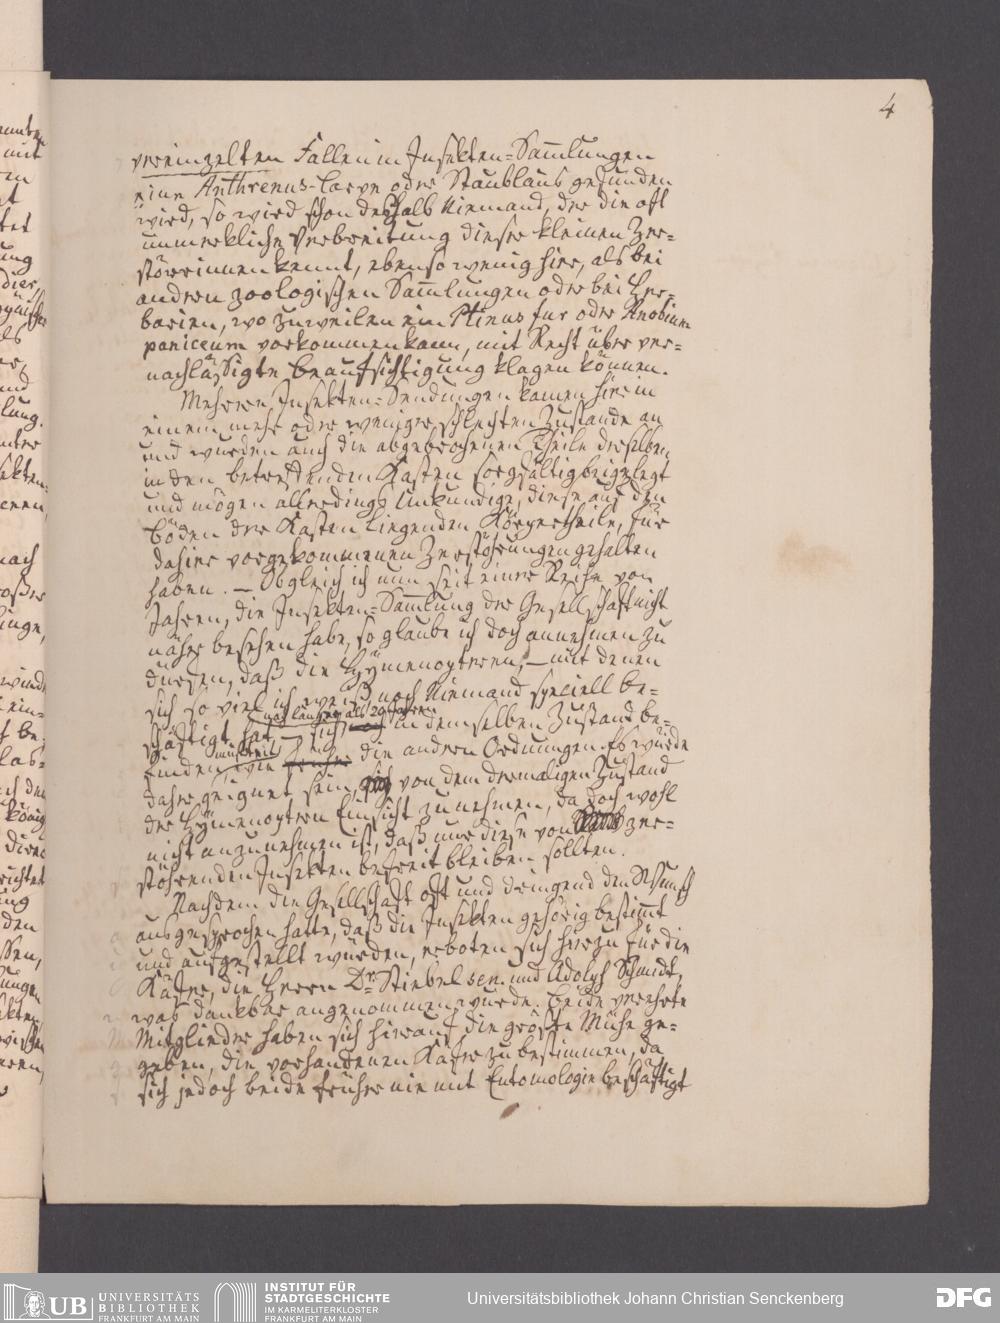 4
vereinzelten Fällen in Insekten-Sammlungen
eine Anthrenus-Larve oder Staublaus gefunden
wird, so wird schon deshalb Niemand, der die oft
unmerkliche Verbreitung dieser kleinen Zer-
störrinnen kennt, ebenso wenig hier, als bei
andren zoologischen Sammlungen oder bei Her-
barien, wo zuweilen ein Ptinus fur oder Anobium
paniceum vorkommen kann, mit Recht über ver-
nachlässigte Beaufsichtigung klagen können.
Mehrere Insekten-Sendungen kamen hier in
einem mehr oder weniger schlechten Zustande an
und wurden auch die abgebrochenen Theile derselben
in den betreffenden Kasten sorgfältig beigelegt
und mögen allerdings Unkundige, diese auf den
Böden der Kasten liegenden Körpertheile, für
dahier vorgekommenen Zerstöhrungen gehalten
haben. – Obgleich ich nun seit einer Reihe von
Jahren, die Insekten-Sammlung der Gesellschaft nicht
näher besehen habe, so glaube ich doch annehmen zu
dürfen, daß die Hÿmenopteren, – mit denen
sich so viel ich weiß noch Niemand speciell be-
schäftigt hat – sich nach länger als 20 Jahren in demselben Zustand be-
finden wie die andren Ordnungen. Es würde
daher geignet sein, von dem dermaligen Zustand
der Hÿmenoptren Einsicht zu nehmen, da doch wohl
nicht anzunehmen ist, daß nur diese von zer-
stöhrenden Insekten befreit bleiben sollten.
Nachdem die Gesellschaft oft und dringend den Wunsch
ausgesprochen hatte, daß die Insekten gehörig bestimmt
und aufgestellt würden, erboten sich hierzu für die
Käfer, die Herrn Dr. Stiebel sen. und Adolph Schmidt,
was dankbar angenommen wurde. Beide verehrte
Mitglieder haben sich hierauf die größte Mühe ge-
geben, die vorhandenen Käfer zu bestimmen, da
sich jedoch beide früher nie mit Entomologie beschäftigt
UB UNIVERSITÄTS
BIBLIOTHEK
FRANKFURT AM MAIN
INSTITUT FÜR
STADTGESCHICHTE
IM KARMELITERKLOSTER
FRANKFURT AM MAIN
Universitätsbibliothek Johann Christian Senckenberg
DFG